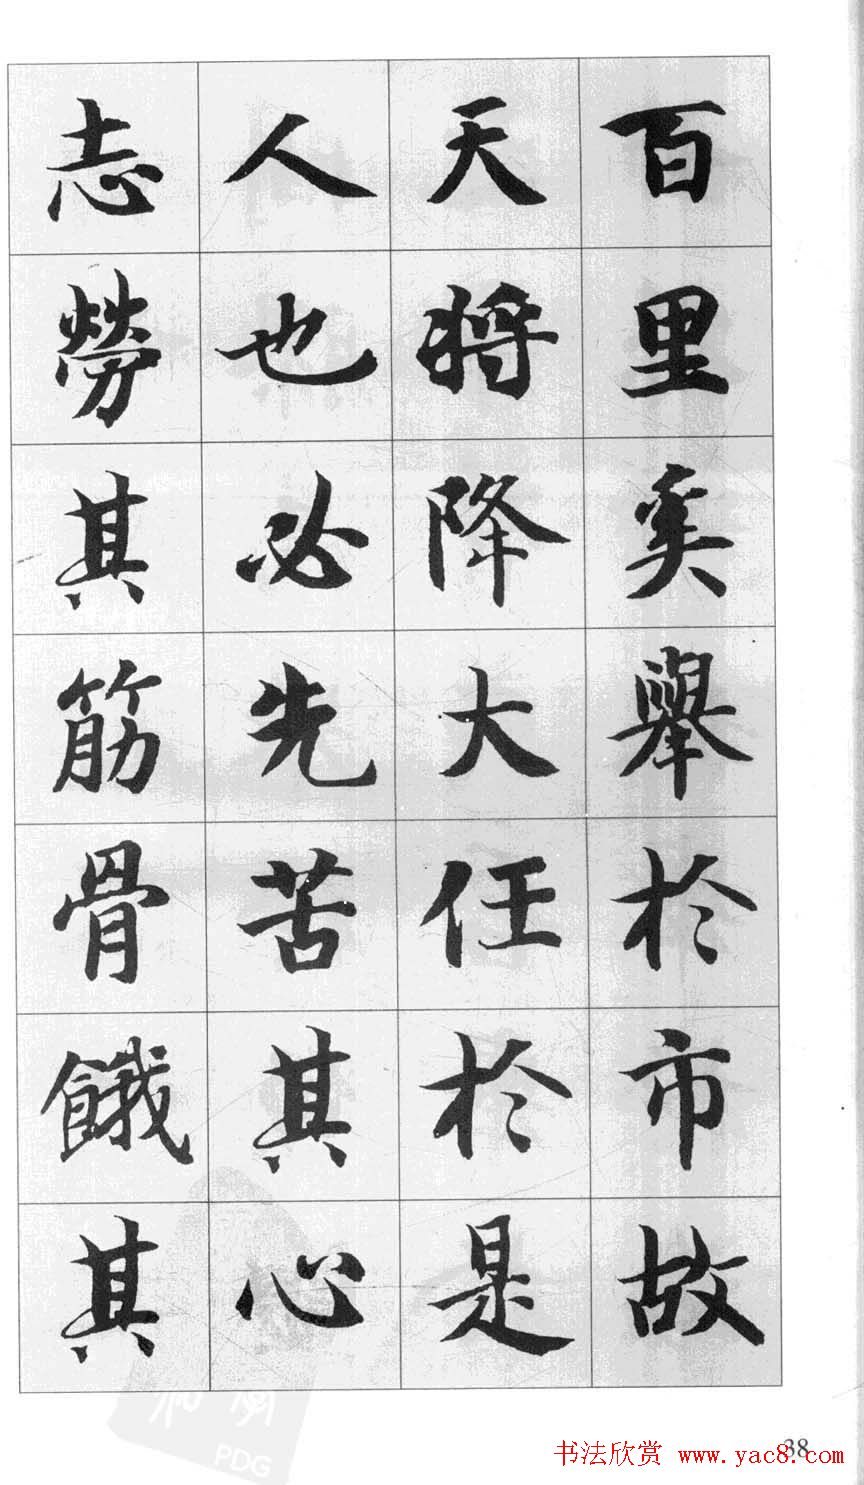 百里奚舉於市故
天將降大任於是
人也必先苦其心
志勞其筋骨餓其
38
书法欣赏 www.yac8.com
PDG